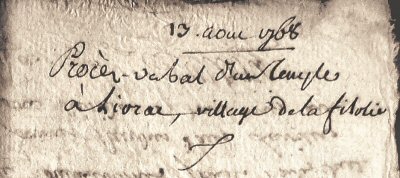 13. aout 1768
Procès-verbal d'un temple
à Liorac, village de la filolie